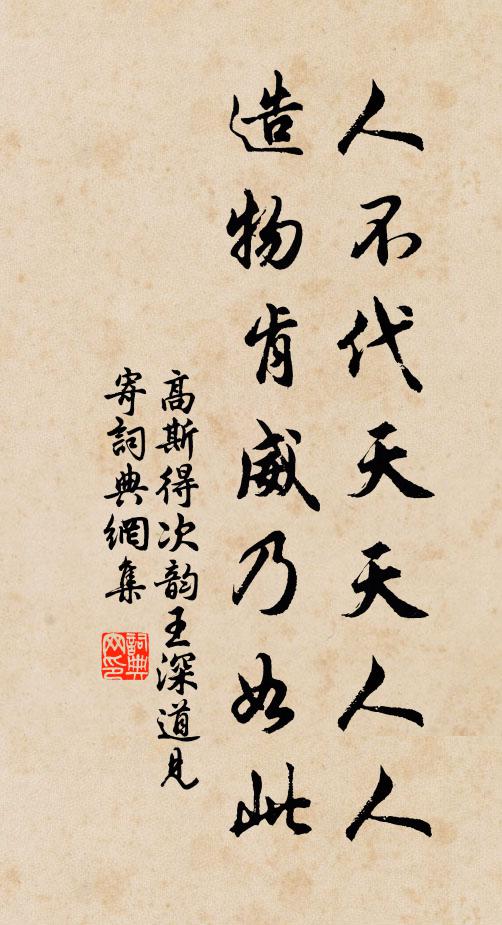 人不代天天人人
造物肯威乃如此
高斯得次韵王深道見
寄詞典網集
詞典
网印